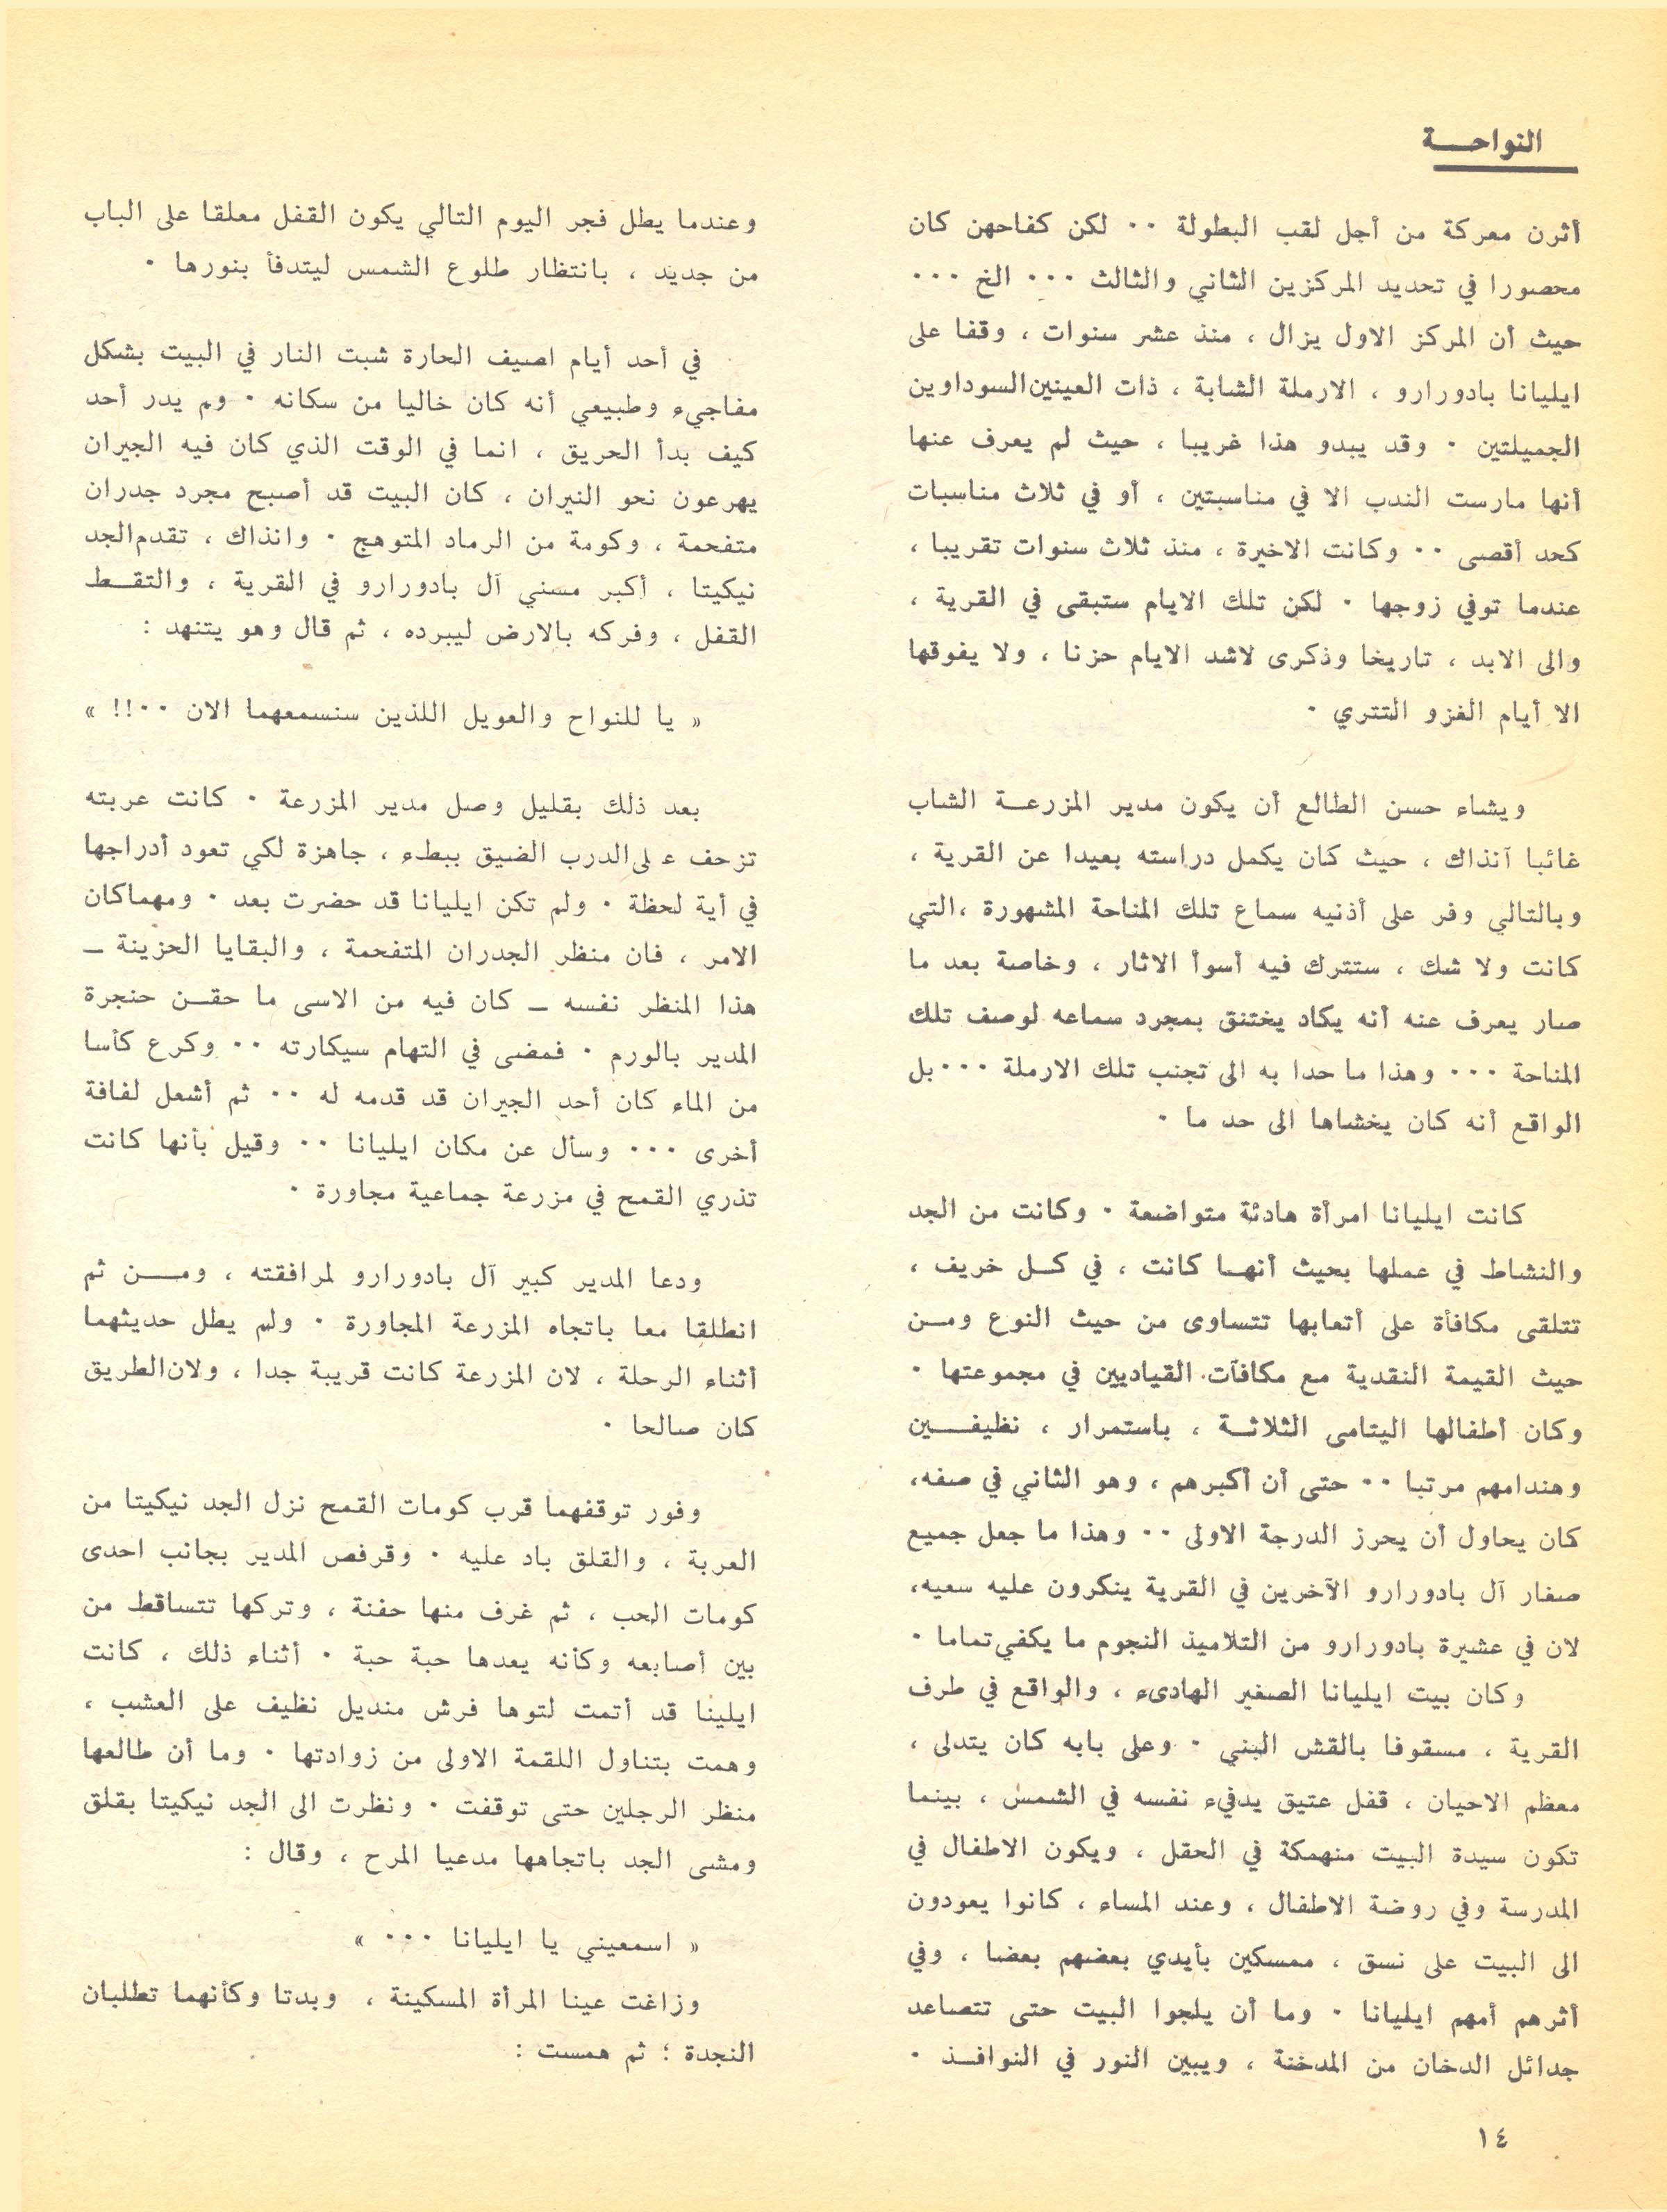 النواحـــة
أثرن معركة من أجل لقب البطولة ۰۰ لكن كفاحهن كان
محصورا في تحديد المركزين الثاني والثالث ۰۰۰ الخ ۰۰۰
حيث أن المركز الاول يزال ، منذ عشر سنوات ، وقفا على
ايليانا بادورارو ، الارملة الشابة ، ذات العينين السوداوين
الجميلتين ۰ وقد يبدو هذا غريبا ، حيث لم يعرف عنها
أنها مارست الندب الا في مناسبتين ، أو في ثلاث مناسبات
كحد أقصى ۰۰ وكانت الاخيرة ، منذ ثلاث سنوات تقريبا ،
عندما توفي زوجها ۰ لكن تلك الايام ستبقى في القرية ،
والى الابد ، تاريخا وذكرى لاشد الايام حزنا ، ولا يفوقها
الا أيام الغزو التتري ۰
ويشاء حسن الطالع أن يكون مدير المزرعـــة الشاب
غائبا آنذاك ، حيث كان يكمل دراسته بعيدا عن القرية ،
وبالتالي وفر على أذنيه سماع تلك المناحة المشهورة ،التي
كانت ولا شك ، ستترك فيه أسوأ الاثار ، وخاصة بعد ما
صار يعرف عنه أنه يكاد يختنق بمجرد سماعه لوصف تلك
المناحة ۰۰۰ وهذا ما حدا به الى تجنب تلك الارملة ۰۰۰بل
الواقع أنه كان يخشاها الى حد ما ۰
كانت ايليانا امرأة هادئة متواضعة ۰ وكانت من الجد
والنشاط في عملها بحيث أنهــا كانت ، في كــل خريف ،
تتلقى مكافأة على أتعابها تتساوى من حيث النوع ومــن
حيث القيمة النقدية مع مكافآت القياديين في مجموعتها ۰
وكان أطفالها اليتامى الثلاثــة ، باستمرار ، نظيفـــين
وهندامهم مرتبا ۰۰ حتى أن أكبرهم ، وهو الثاني في صفه،
كان يحاول أن يحرز الدرجة الاولى ۰۰ وهذا ما جعل جميع
صغار آل بادورارو الآخرين في القرية ينكرون عليه سعيه،
لان في عشيرة بادورارو من التلاميذ النجوم ما يكفي تماما ۰
وكان بيت ايليانا الصغير الهادىء ، والواقع في طرف
القرية ، مسقوفا بالقش البني ۰ وعلى بابه كان يتدلى ،
معظم الاحيان ، قفل عتيق يدفيء نفسه في الشمس ، بينما
تكون سيدة البيت منهمكة في الحقل ، ويكون الاطفال في
المدرسة وفي روضة الاطفال ، وعند المساء ، كانوا يعودون
الى البيت على نسق ، ممسكين بأيدي بعضهم بعضا ، وفي
أثرهم أمهم ايليانا ۰ وما أن يلجوا البيت حتى تتصاعد
جدائل الدخان من المدخنة ، ويبين النور في النوافــذ ۰
وعندما يطل فجر اليوم التالي يكون القفل معلقا على الباب
من جديد ، بانتظار طلوع الشمس ليتدفأ بنورها ۰
في أحد أيام اصيف الحارة شبت النار في البيت بشكل
مفاجيء وطبيعي أنه كان خاليا من سكانه ۰ ولم يدر أحد
كيف بدأ الحريق ، انما في الوقت الذي كان فيه الجيران
يهرعون نحو النيران ، كان البيت قد أصبح مجرد جدران
متفحمة ، وكومة من الرماد المتوهج ۰ وانذاك ، تقدم الجد
نيكيتا ، أكبر مسني آل بادورارو في القرية ، والتقــط
القفل ، وفركه بالارض ليبرده ، ثم قال وهو يتنهد :
« يا للنواح والعويل اللذين سنسمعهما الان ۰۰!! »
بعد ذلك بقليل وصل مدير المزرعة ۰ كانت عربته
تزحف على الدرب الضيق ببطء ، جاهزة لكي تعود أدراجها
في أية لحظة ۰ ولم تكن ايليانا قد حضرت بعد ۰ ومهما كان
الامر ، فان منظر الجدران المتفحمة ، والبقايا الحزينة ـ
هذا المنظر نفسه ـ كان فيه من الاسى ما حقــن حنجرة
المدير بالورم ۰ فمضى في التهام سيكارته ۰۰ وكرع كأسا
من الماء كان أحد الجيران قد قدمه له ۰۰ ثم أشعل لفافة
أخرى ۰۰۰ وسأل عن مكان ايليانا ۰۰ وقيل بأنها كانت
تذري القمح في مزرعة جماعية مجاورة ۰
ودعا المدير كبير آل بادورارو لمرافقته ، ومـــن ثم
انطلقا معا باتجاه المزرعة المجاورة ۰ ولم يطل حديثهما
أثناء الرحلة ، لان المزرعة كانت قريبة جدا ، ولان الطريق
كان صالحا ۰
وفور توقفهما قرب كومات القمح نزل الجد نيكيتا من
العربة ، والقلق باد عليه ۰ وقرفص المدير بجانب احدى
كومات الحب ، ثم غرف منها حفنة ، وتركها تتساقط من
بين أصابعه وكأنه يعدها حبة حبة ۰ أثناء ذلك ، كانت
ايلينا قد أتمت لتوها فرش منديل نظيف على العشب ،
وهمت بتناول اللقمة الاولى من زوادتها ۰ وما أن طالعها
منظر الرجلين حتى توقفت ۰ ونظرت الى الجد نيكيتا بقلق
ومشى الجد باتجاهها مدعيا المرح ، وقال :
« اسمعيني يا ايليانا ۰۰۰ »
وزاغت عينا المرأة المسكينة ، وبدتا وكأنهما تطلبان
النجدة ؛ ثم همست :
١٤